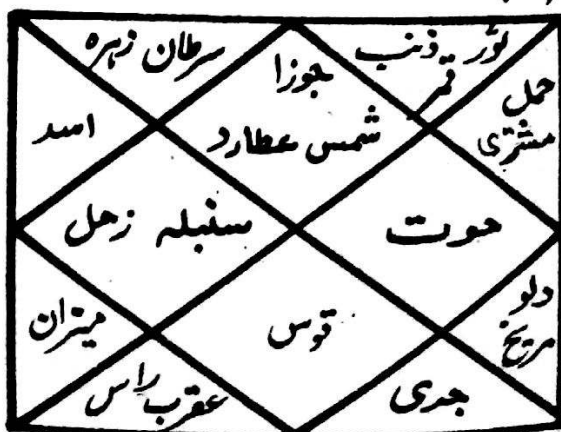 سرطان زہرہ
جوزا
شمس عطارد
ثور ذنب
قمر
حمل
مشتری
اسد
سنبلہ زحل
حوت
میزان
قوس
دلو
مریخ
عقرب راس
جدی